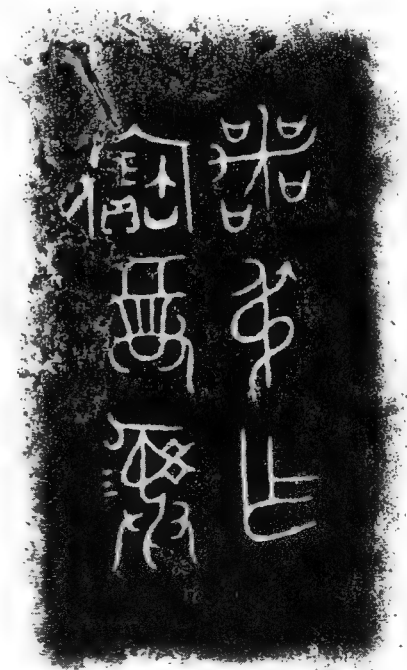 噩弔乍
寶尊彝